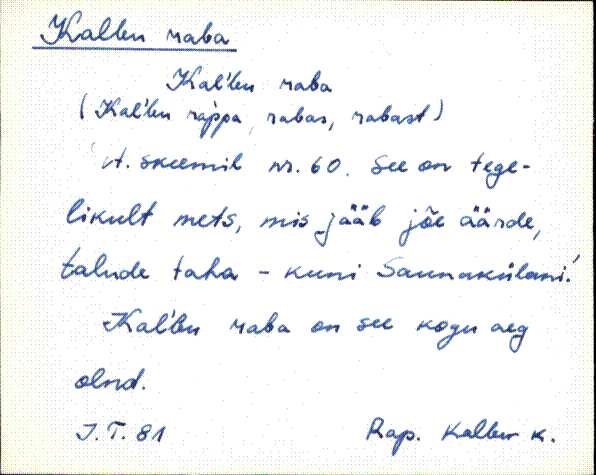 Kallen raba
Kal'len raba
(Kal'len rappa, rabas, rabast)
vt. skeemil nr. 60. See on tege-
likult mets, mis jääb jõe äärde,
talude taha - kuni Saunakülani!
Kal'len raba on see kogu aeg
olnd.
J.T. 81 Rap. Kallen k.